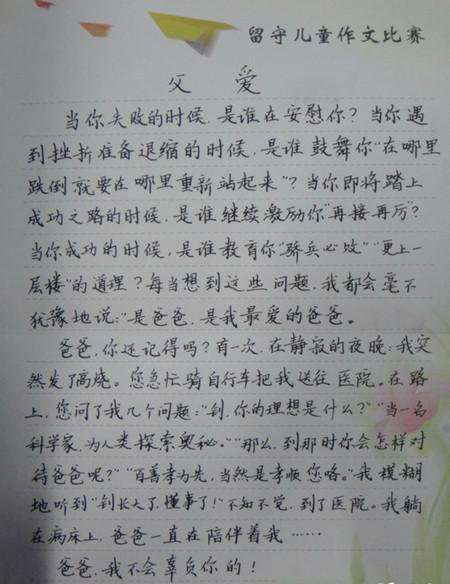 留守儿童作文比赛
父 爱
当你失败的时候,是谁在安慰你?当你遇
到挫折准备退缩的时候,是谁鼓舞你“在哪里
跌倒就要在哪里重新站起来”?当你即将踏上
成功之路的时候,是谁继续激励你“再接再厉?
当你成功的时候,是谁教育你“骄兵必败”“更上一
层楼”的道理?每当想到这些问题,我都会毫不
犹豫地说:“是爸爸,是我最爱的爸爸。
爸爸,你还记得吗?有一次,在静寂的夜晚:我突
然发了高烧。您急忙骑自行车把我送往医院。在路
上,您问了我几个问题:“钊,你的理想是什么?”“当一名
科学家,为人类探索奥秘。”“那么,到那时你会怎样对
待爸爸呢?”“百善孝为先,当然是孝顺您咯。”我模糊
地听到“钊长大了,懂事了!”不知不觉,到了医院。我躺
在病床上,爸爸一直在陪伴着我……
爸爸,我不会辜负你的!